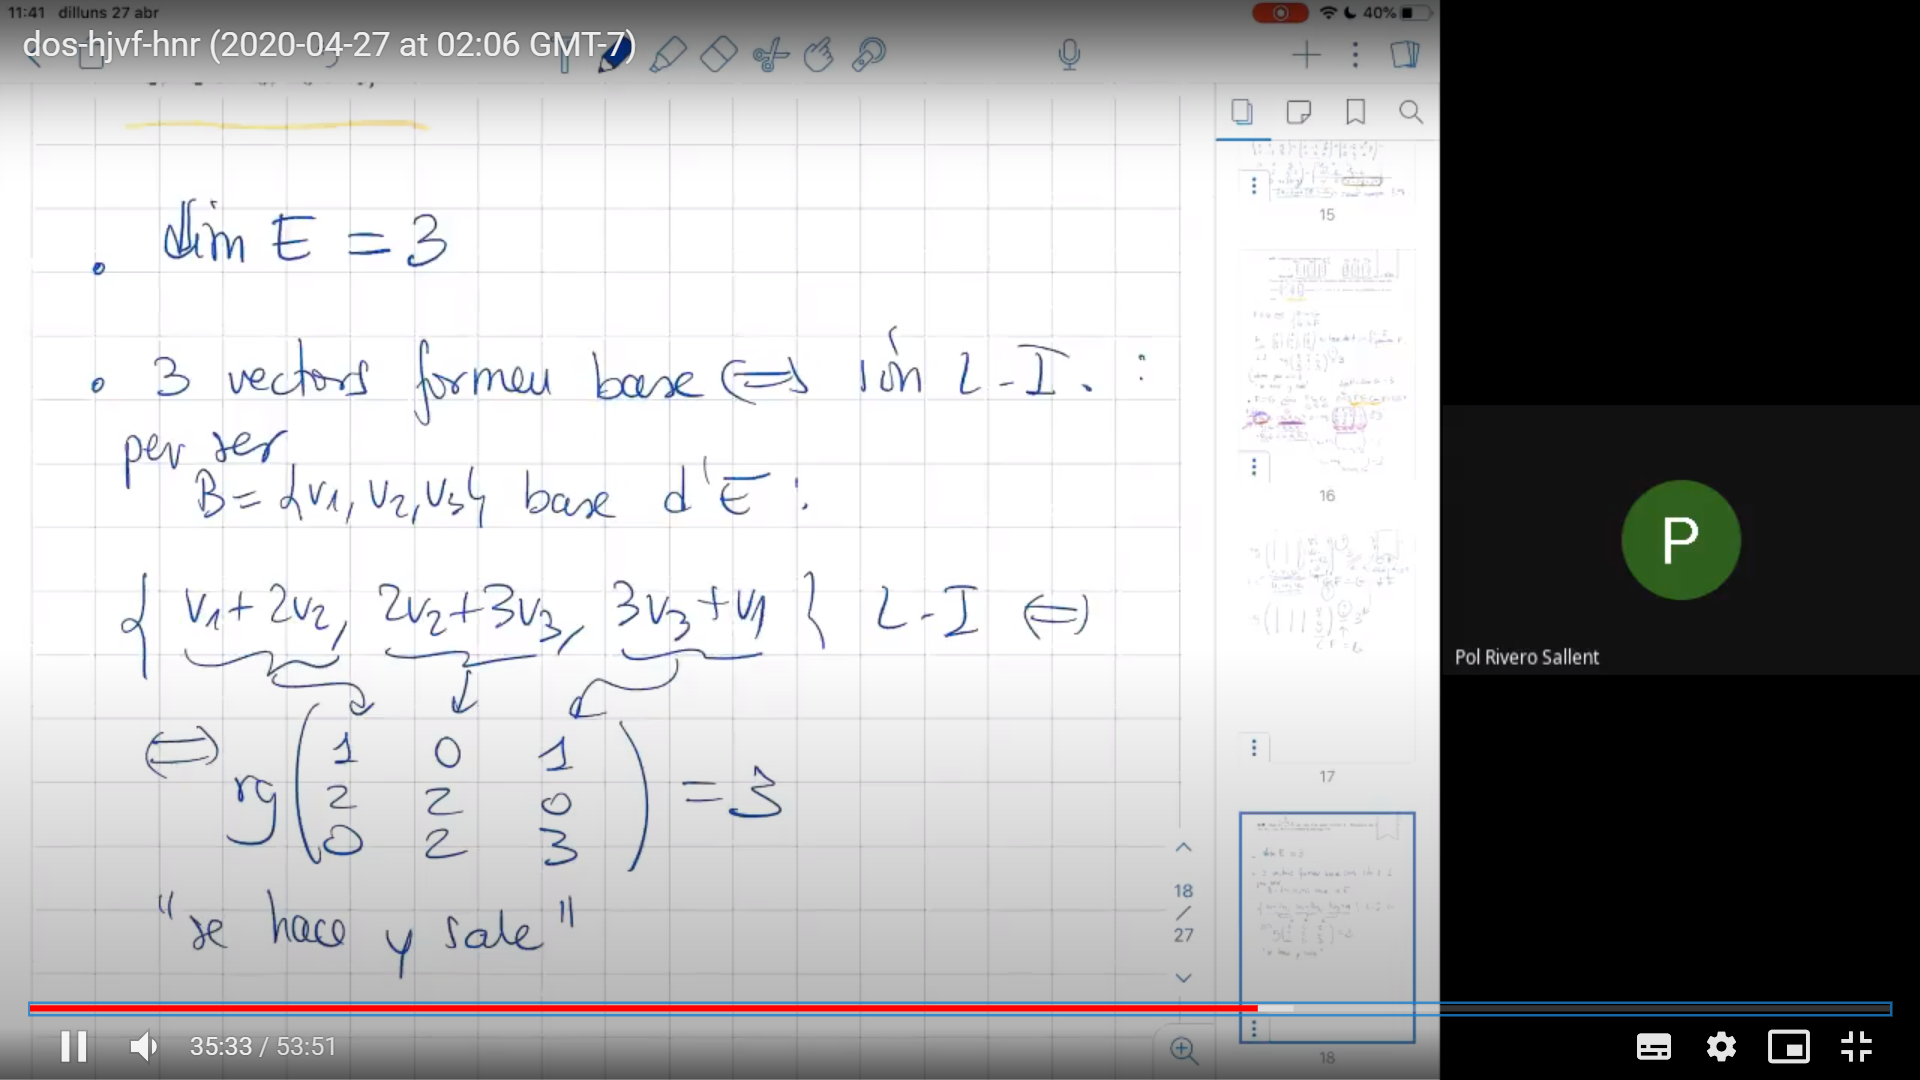 11:41 dilluns 27 abr
40%
dos-hjvf-hnr (2020-04-27 at 02:06 GMT-7)
dim E = 3
3 vectors formen base ⇔ són L-I. :
per ser
B = {v1, v2, v3} base d'E :
{ v1 + 2v2, 2v2 + 3v3, 3v3 + v1 } L-I ⇔
⇔ rg ( 1 0 1
2 2 0
0 2 3 ) = 3
"se hace y sale"
15
16
17
18
18
/
27
P
Pol Rivero Sallent
35:33 / 53:51